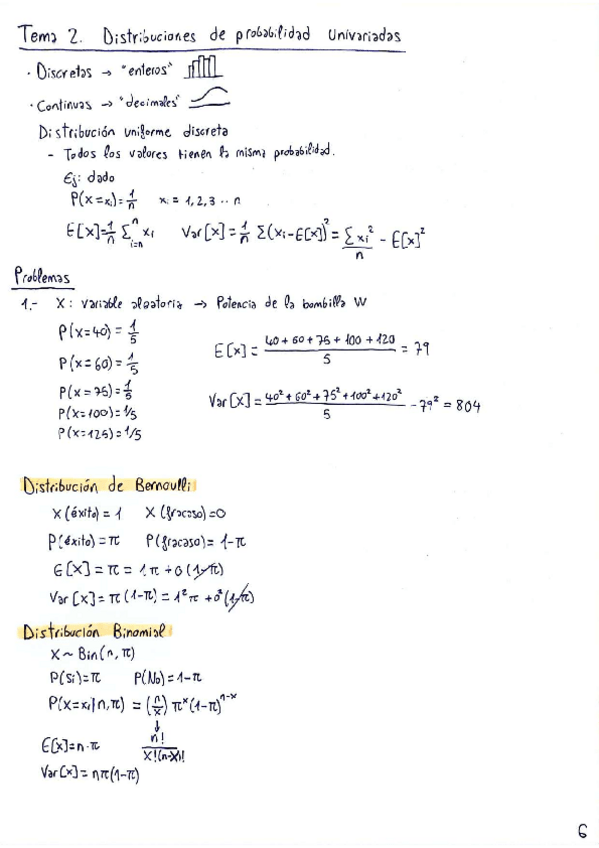 Tema 2. Distribuciones de probabilidad Univariadas
· Discretas → "enteros"
· Continuas → "decimales"
Distribución uniforme discreta
- Todos los valores tienen la misma probabilidad.
Ej: dado
P(x=xᵢ)=1/n xᵢ = 1,2,3 ·· n
E[x]=1/n Σⁿᵢ₌ₙ xᵢ Var[x]=1/n Σ(xᵢ-E[x])²= Σxᵢ²/n - E[x]²
Problemas
1.- X: variable aleatoria → Potencia de la bombilla W
P(x=40) = 1/5
E[x] = (40+60+75+100+120)/5 = 79
P(x=60) = 1/5
P(x=75) = 1/5
Var[x] = (40²+60²+75²+100²+120²)/5 - 79² = 804
P(x=100)=1/5
P(x=125)=1/5
Distribución de Bernoulli
X(éxito) = 1 X(fracaso)=0
P(éxito) = π P(fracaso) = 1-π
E[x] = π = 1·π + 0(1-π)
Var[x] = π(1-π) = 1²π + 0²(1-π)
Distribución Binomial
X ~ Bin(n, π)
P(Sí)=π P(No)=1-π
P(x=xᵢ|n,π) = (n/x) πˣ(1-π)ⁿ⁻ˣ
↓
E[x]=n·π n!/x!(n-x)!
Var[x] = nπ(1-π)
6